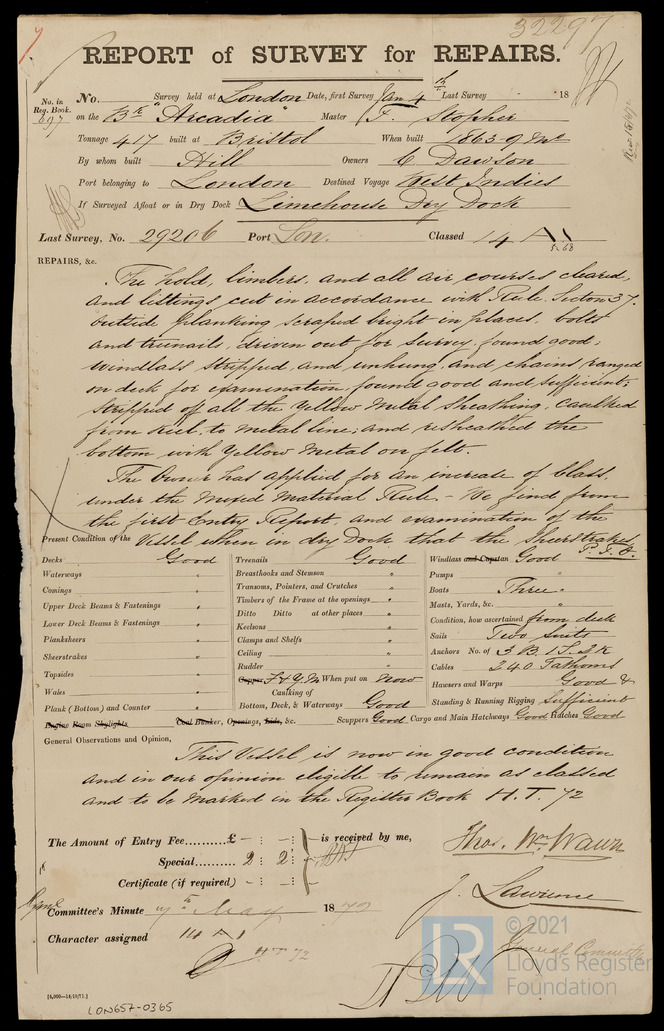 32297
REPORT of SURVEY for REPAIRS.
No. in Reg. Book. 697
No. Survey held at London Date, first Survey Jan 4th Last Survey 18
on the Bk "Arcadia" Master F. Stopher
Tonnage 417 built at Bristol When built 1863-9 Mo
By whom built Hill Owners C Dawson
Port belonging to London Destined Voyage West Indies
If Surveyed Afloat or in Dry Dock Limehouse Dry Dock
Last Survey, No. 29206 Port Lon. Classed 14 A1
5.68
REPAIRS, &c.
The hold, limbers, and all air courses cleared,
and listings cut in accordance with Rule. Section 37.
outside planking scraped bright in places, bolts
and treenails, driven out for survey, found good;
windlass stripped, and unhung, and chains ranged
on deck for examination, found good and sufficient;
stripped off all the Yellow Metal Sheathing, caulked
from keel, to metal line; and resheathed the
bottom with Yellow Metal on felt.
The Owner has applied for an increase of Class,
under the Mixed Material Rule. - We find from
the first Entry Report, and examination of the
Present Condition of the Vessel when in dry Dock that the Sheerstrakes
P.T.O.
Decks Good Treenails Good Windlass and Capstan Good
Waterways " Breasthooks and Stemson " Pumps "
Comings " Transoms, Pointers, and Crutches " Boats Three "
Upper Deck Beams & Fastenings " Timbers of the Frame at the openings " Masts, Yards, &c. "
Lower Deck Beams & Fastenings " Ditto Ditto at other places " Condition, how ascertained from deck
Planksheers " Keelsons " Sails Two suits
Sheerstrakes " Clamps and Shelfs " Anchors No. of 3 B. 1 S. 2 K
Topsides " Ceiling " Cables 240 Fathoms
Wales " Rudder " Hawsers and Warps Good &
Plank (Bottom) and Counter " Copper F & Y.M When put on Now Standing & Running Rigging Sufficient
Caulking of Bottom, Deck, & Waterways Good
Engine Room Skylights Coal Bunker, Openings, Lids, &c. Scuppers Good Cargo and Main Hatchways Good Hatches Good
General Observations and Opinion,
This Vessel is now in good condition
and in our opinion eligible to remain as classed
and to be marked in the Register Book H.T. 72
The Amount of Entry Fee..........£ - : - : is received by me,
Special.......... 2 : 2 :
Certificate (if required) - : - :
Thos. Wm Wawn
J. Lawrence
Committee's Minute 7th May 1872
Character assigned 14 A1
HT 72
General Committee
[6,000-14/10/71.]
LON657-0365
LR
© 2021
Lloyd's Register
Foundation